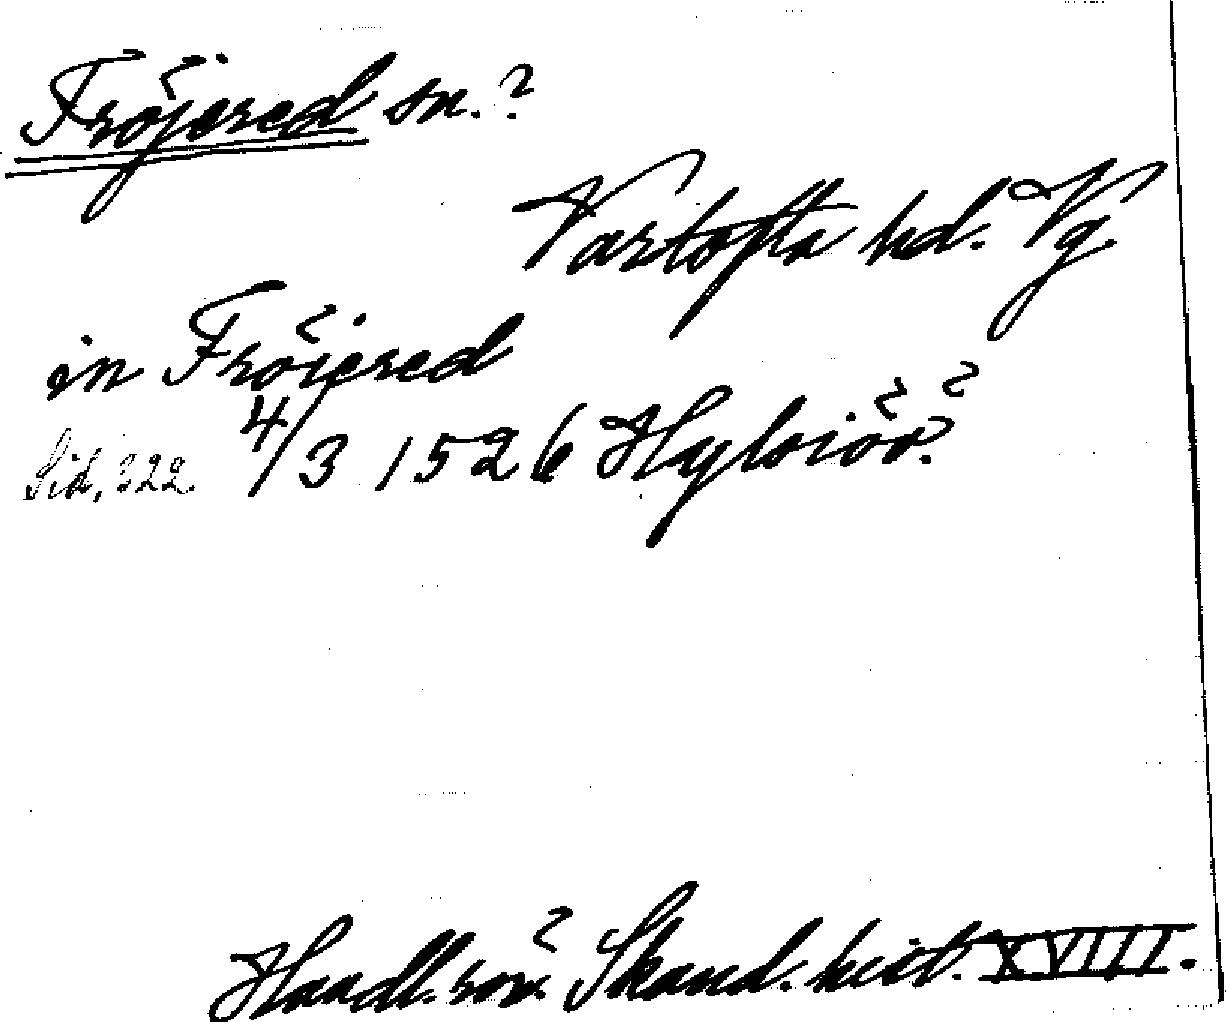 Fröjered sn.?
Vartofta hd. Vg.
in Fröiered
Sid. 322. 4/3 1526 Hylsiöö.
Handl. rör. Skand. hist. XVIII.